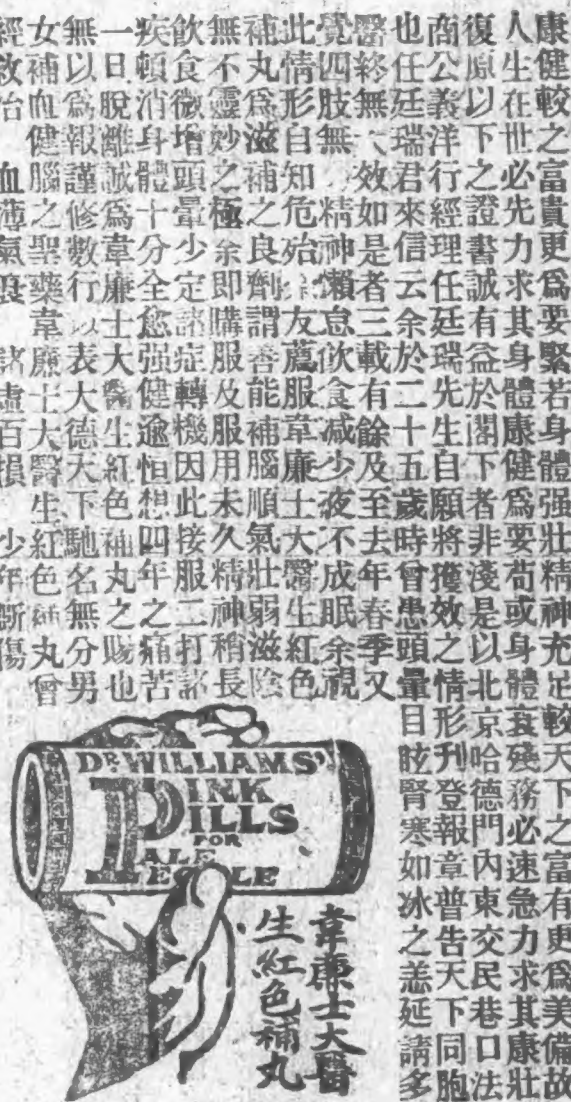 康健較之富貴更爲要緊若身體强壯精神充足較天下之富有更爲美備故
人生在世必先力求其身體康健爲要苟或身體衰殘務必速急力求其康壯
復原以下之證書誠有益於閣下者非淺是以北京哈德門內東交民巷口法
商公義洋行經理任廷瑞先生自願將獲效之情形刋登報章普告天下同胞
也任廷瑞君來信云余於二十五歲時曾患頭暈目眩腎寒如冰之恙延請多
醫終無大效如是者三載有餘及至去年春季又
覺四肢無精神懶怠飲食減少夜不成眠余視
此情形自知危殆余友薦服韋廉士大醫生紅色
補丸爲滋補之良劑謂善能補腦順氣壯弱滋陰
無不靈妙之極余即購服及服用未久精神稍長
飲食微增頭暈少定諸症轉機因此接服二打諸
疾頓消身體十分全愈强健逾恒想四年之痛苦
一日脫離誠爲韋廉士大醫生紅色補丸之賜也
無以爲報謹修數行以表大德天下馳名無分男
女補血健腦之聖藥韋廉士大醫生紅色補丸曾
經救治 血薄氣衰 諸虛百損 少年斲傷
DR WILLIAMS'
PINK
PILLS
FOR
PALE
PEOPLE
韋廉士大醫
生紅色補丸